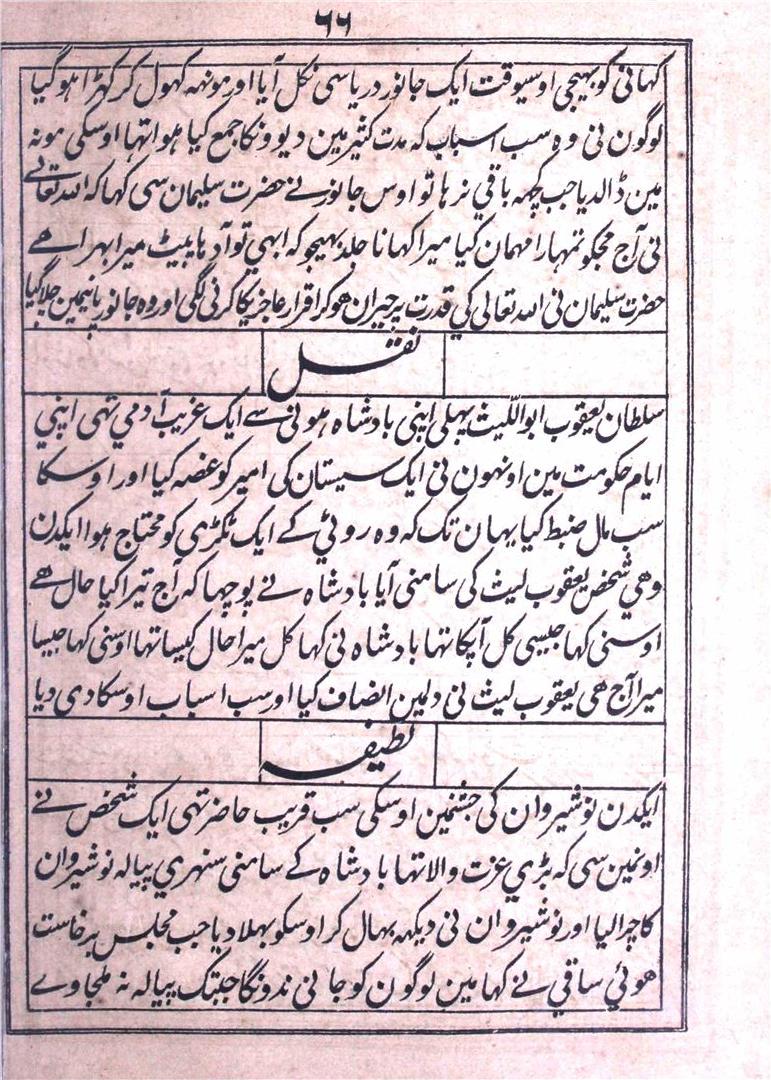 ٦٦
کہانی کو بہیجی اوسیوقت ایک جانور دریا سی نکل آیا اور مونہہ کہول کر کہڑا ہو گیا
لوگون نی وہ سب اسباب کہ مدت کثیر مین دیوونکا جمع کیا ہوا تہا اوسکی مونہ
مین ڈالدیا جب کچہہ باقی نرہا تو اوس جانور نے حضرت سلیمان سی کہا کہ اللہ تعالے
نی آج مجکو تمہارا مہمان کیا میرا کہانا جلد بہیجو کہ ابہی تو آدہا پیٹ میرا بہرا ھے
حضرت سلیمان نی اللہ تعالی کی قدرت پر حیران ھو کر اقرار عاجزیکا کرنی لگی اور وہ جانور پانیمین چلا گیا
نقل
سلطان یعقوب ابو اللیث پہلی اپنی بادشاہ ہونی سے ایک غریب آدمی تہی اپنی
ایام حکومت مین اونہون نی ایک سیستان کی امیر کو غضہ کیا اور اوسکا
سب مال ضبط کیا یہان تک کہ وہ روٹی کے ایک ٹکڑی کو محتاج ہوا ایکدن
وھی شخص یعقوب لیث کی سامنی آیا بادشاہ نے پوچہا کہ آج تیرا کیا حال ھے
اوسنی کہا جیسی کل آپکا تہا بادشاہ نی کہا کل میرا حال کیسا تہا اوسنی کہا جیسا
میرا آج ھی یعقوب لیث نی دلمین انصاف کیا اور سب اسباب اوسکا دی دیا
لطیفہ
ایکدن نوشیروان کی جشنمین اوسکی سب قریب حاضر تہی ایک شخص نے
اونمین سی کہ بڑی عزت والا تہا بادشاہ کے سامنی سنہری پیالہ نوشیروان
کا چرا لیا اور نوشیروان نی دیکہہ بہال کر اوسکو بہلا دیا جب مجلس برخاست
ھوئی ساقی نے کہا مین لوگون کو جانی ندونگا جبتک پیالہ نہ ملجاوے